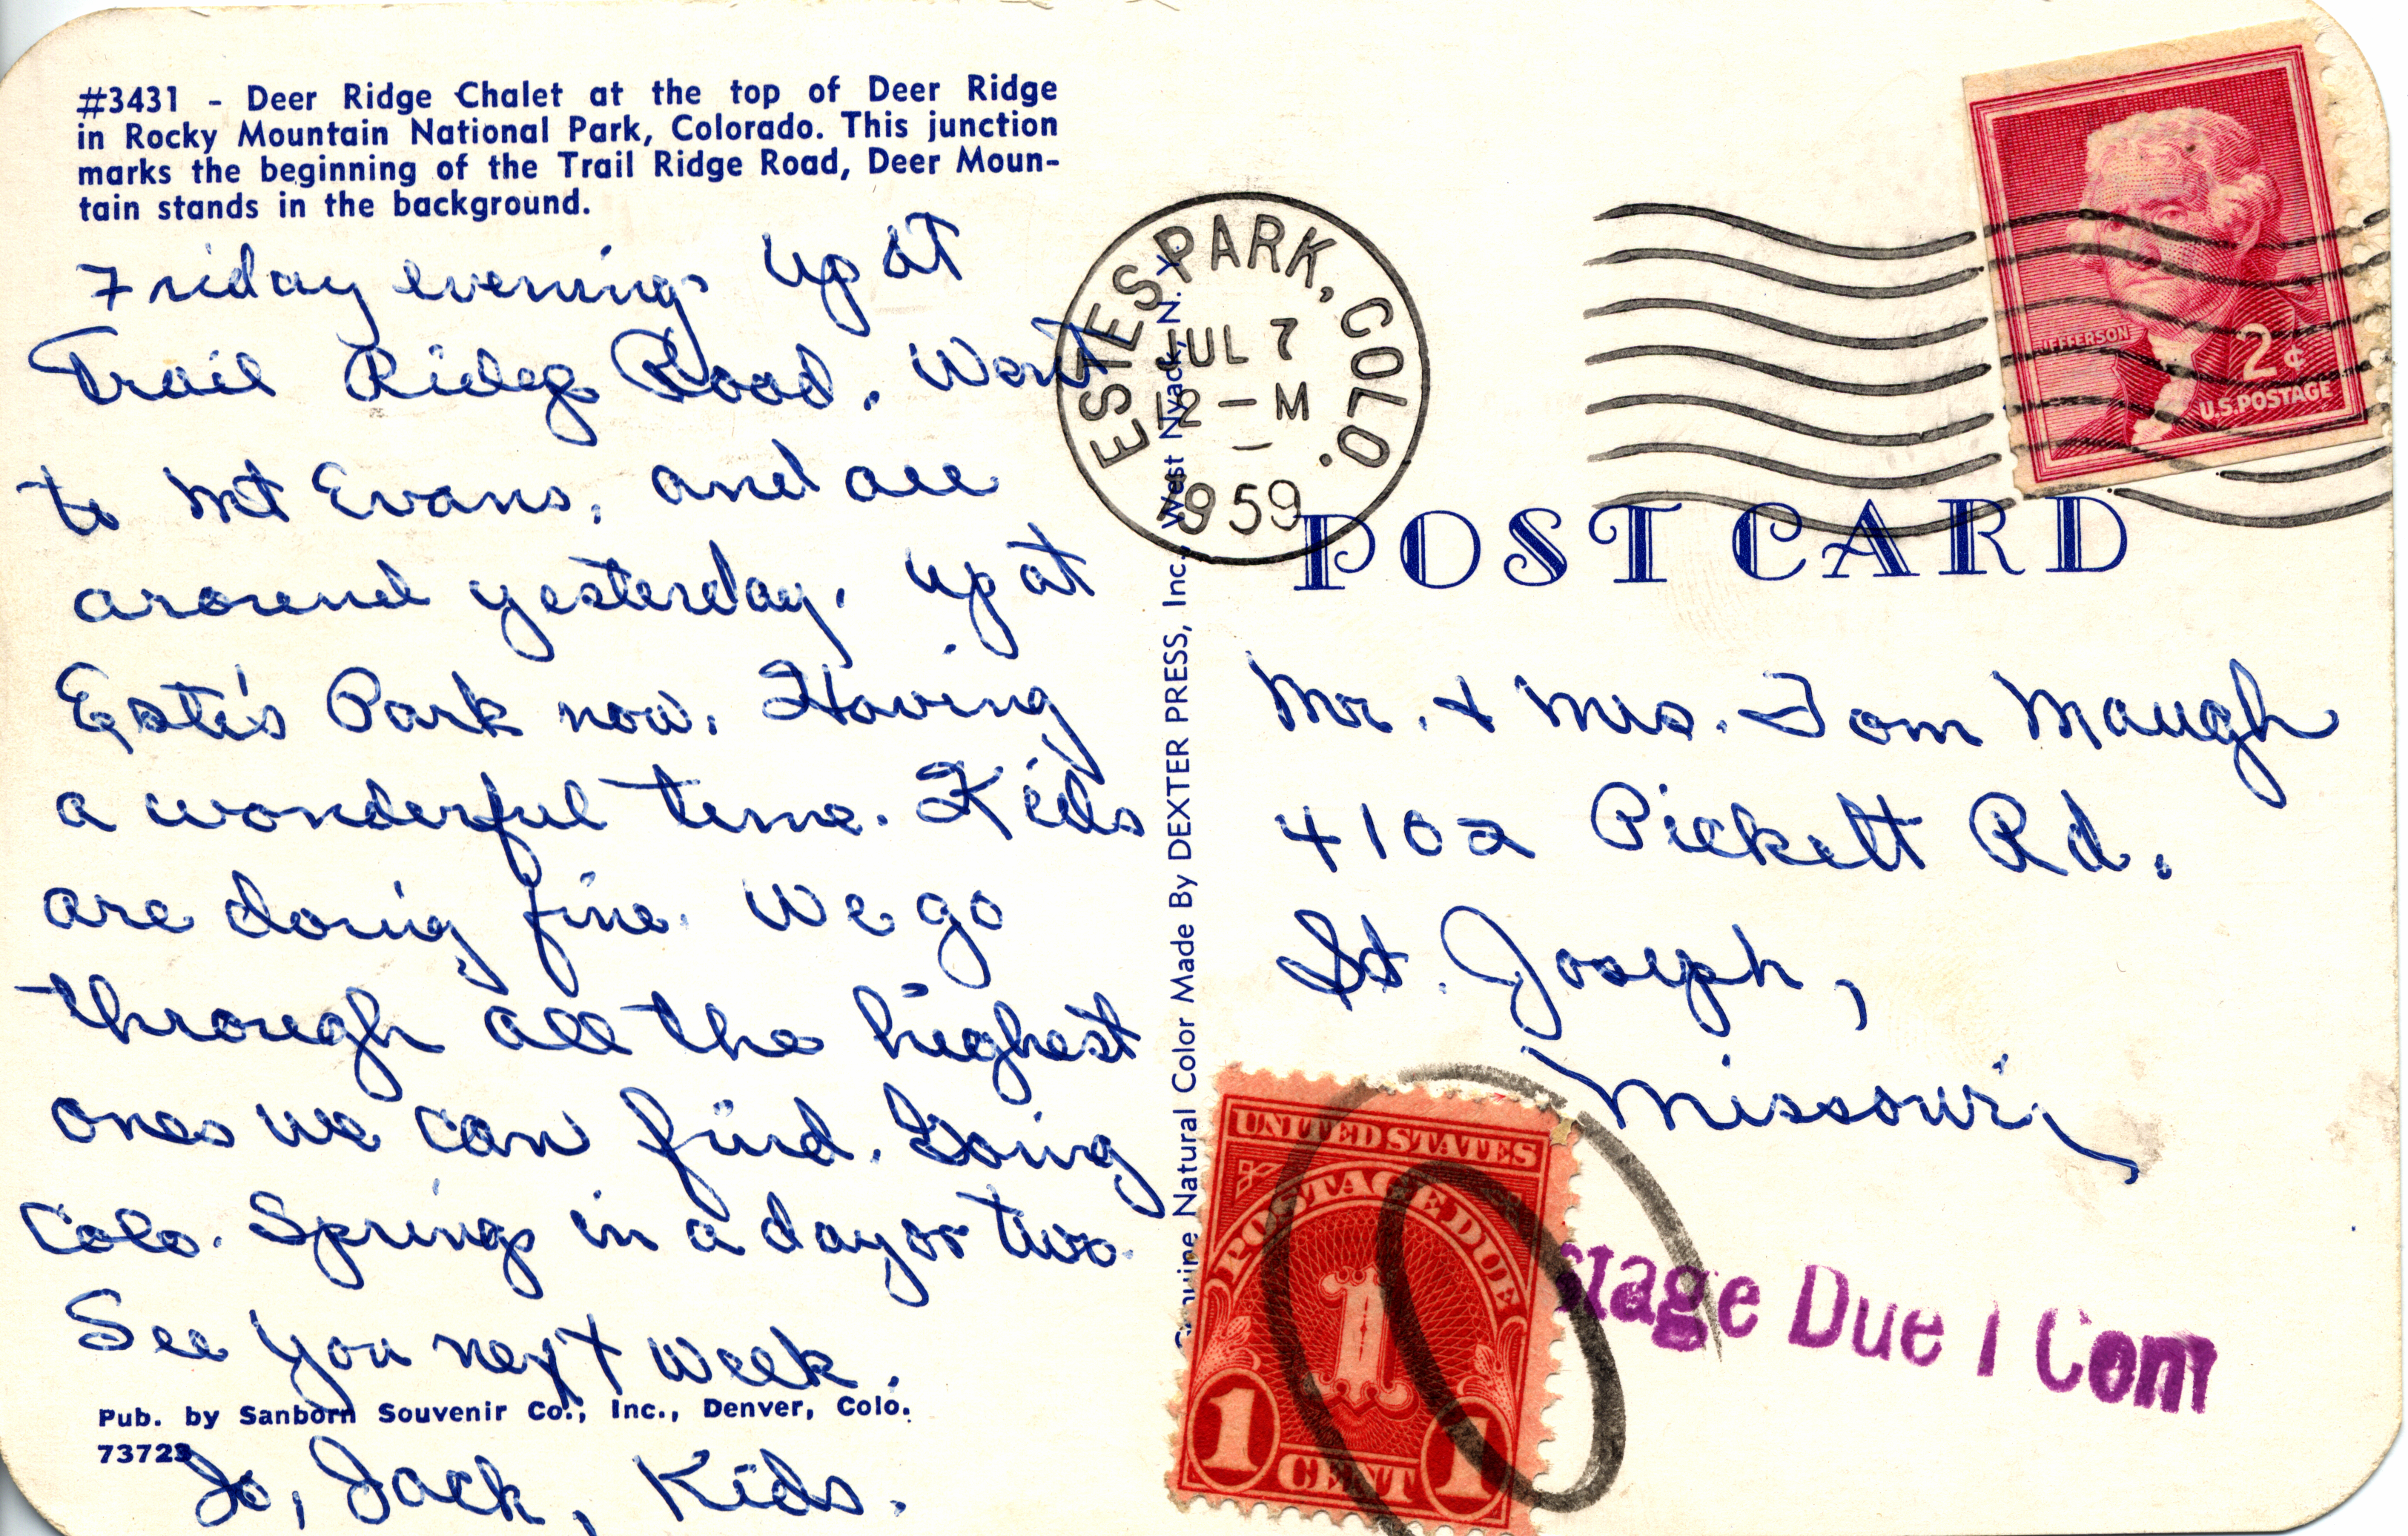 #3431 - Deer Ridge Chalet at the top of Deer Ridge
in Rocky Mountain National Park, Colorado. This junction
marks the beginning of the Trail Ridge Road, Deer Moun-
tain stands in the background.
Friday evening. Up at
Trail Ridge Road. Went
to Mt Evans, and all
around yesterday. Up at
Este's Park now. Having
a wonderful time. Kids
are doing fine. We go
through all the highest
ones we can find. Going
Colo. Springs in a day or two.
See you next week.
Pub. by Sanborn Souvenir Co., Inc., Denver, Colo.
73723
Jo, Jack, Kids.
Genuine Natural Color Made By DEXTER PRESS, Inc., West Nyack, N. Y.
ESTES PARK, COLO.
JUL 7
12 - M
1959
JEFFERSON
2¢
U.S. POSTAGE
POST CARD
Mr. & Mrs. Tom Maugh
4102 Pickett Rd.
St. Joseph,
Missouri
UNITED STATES
POSTAGE DUE
1
1 CENT 1
stage Due 1 Cent